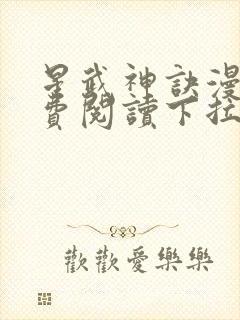 星武神訣漫
費閱讀下拉
歡歡愛樂樂